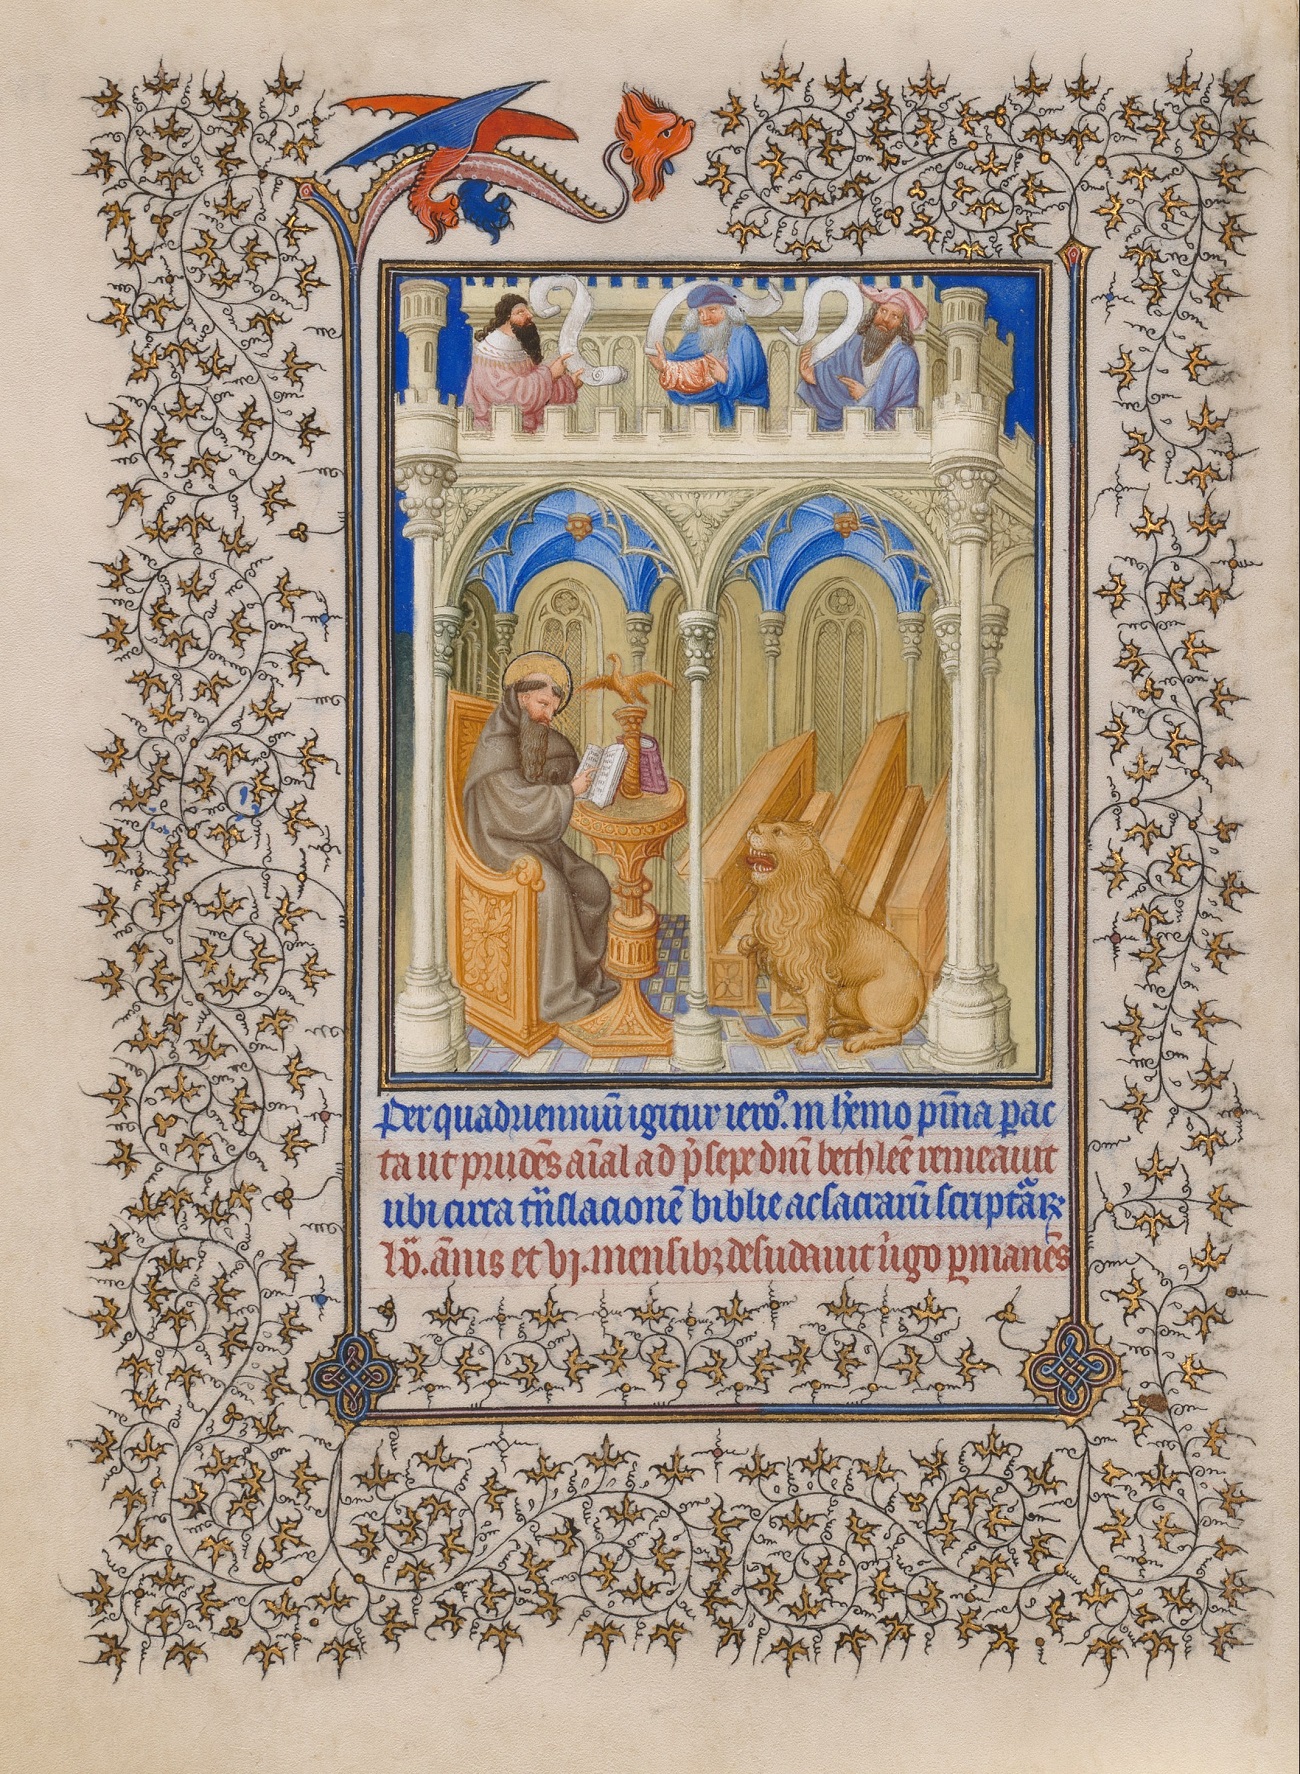 Per quadriennium̄ igitur iero⁹. in h̓emo pn̄īa ꝑac
ta ut prudēs aīal ad p̓sepe dn̄ī bethleē remeauit
ubi circa tr̄nslacionē biblie ac sacrarū scriptāꝝ
lv̄. ānis et vj. mensibꝫ desudauit u̓igo ꝑmanēs